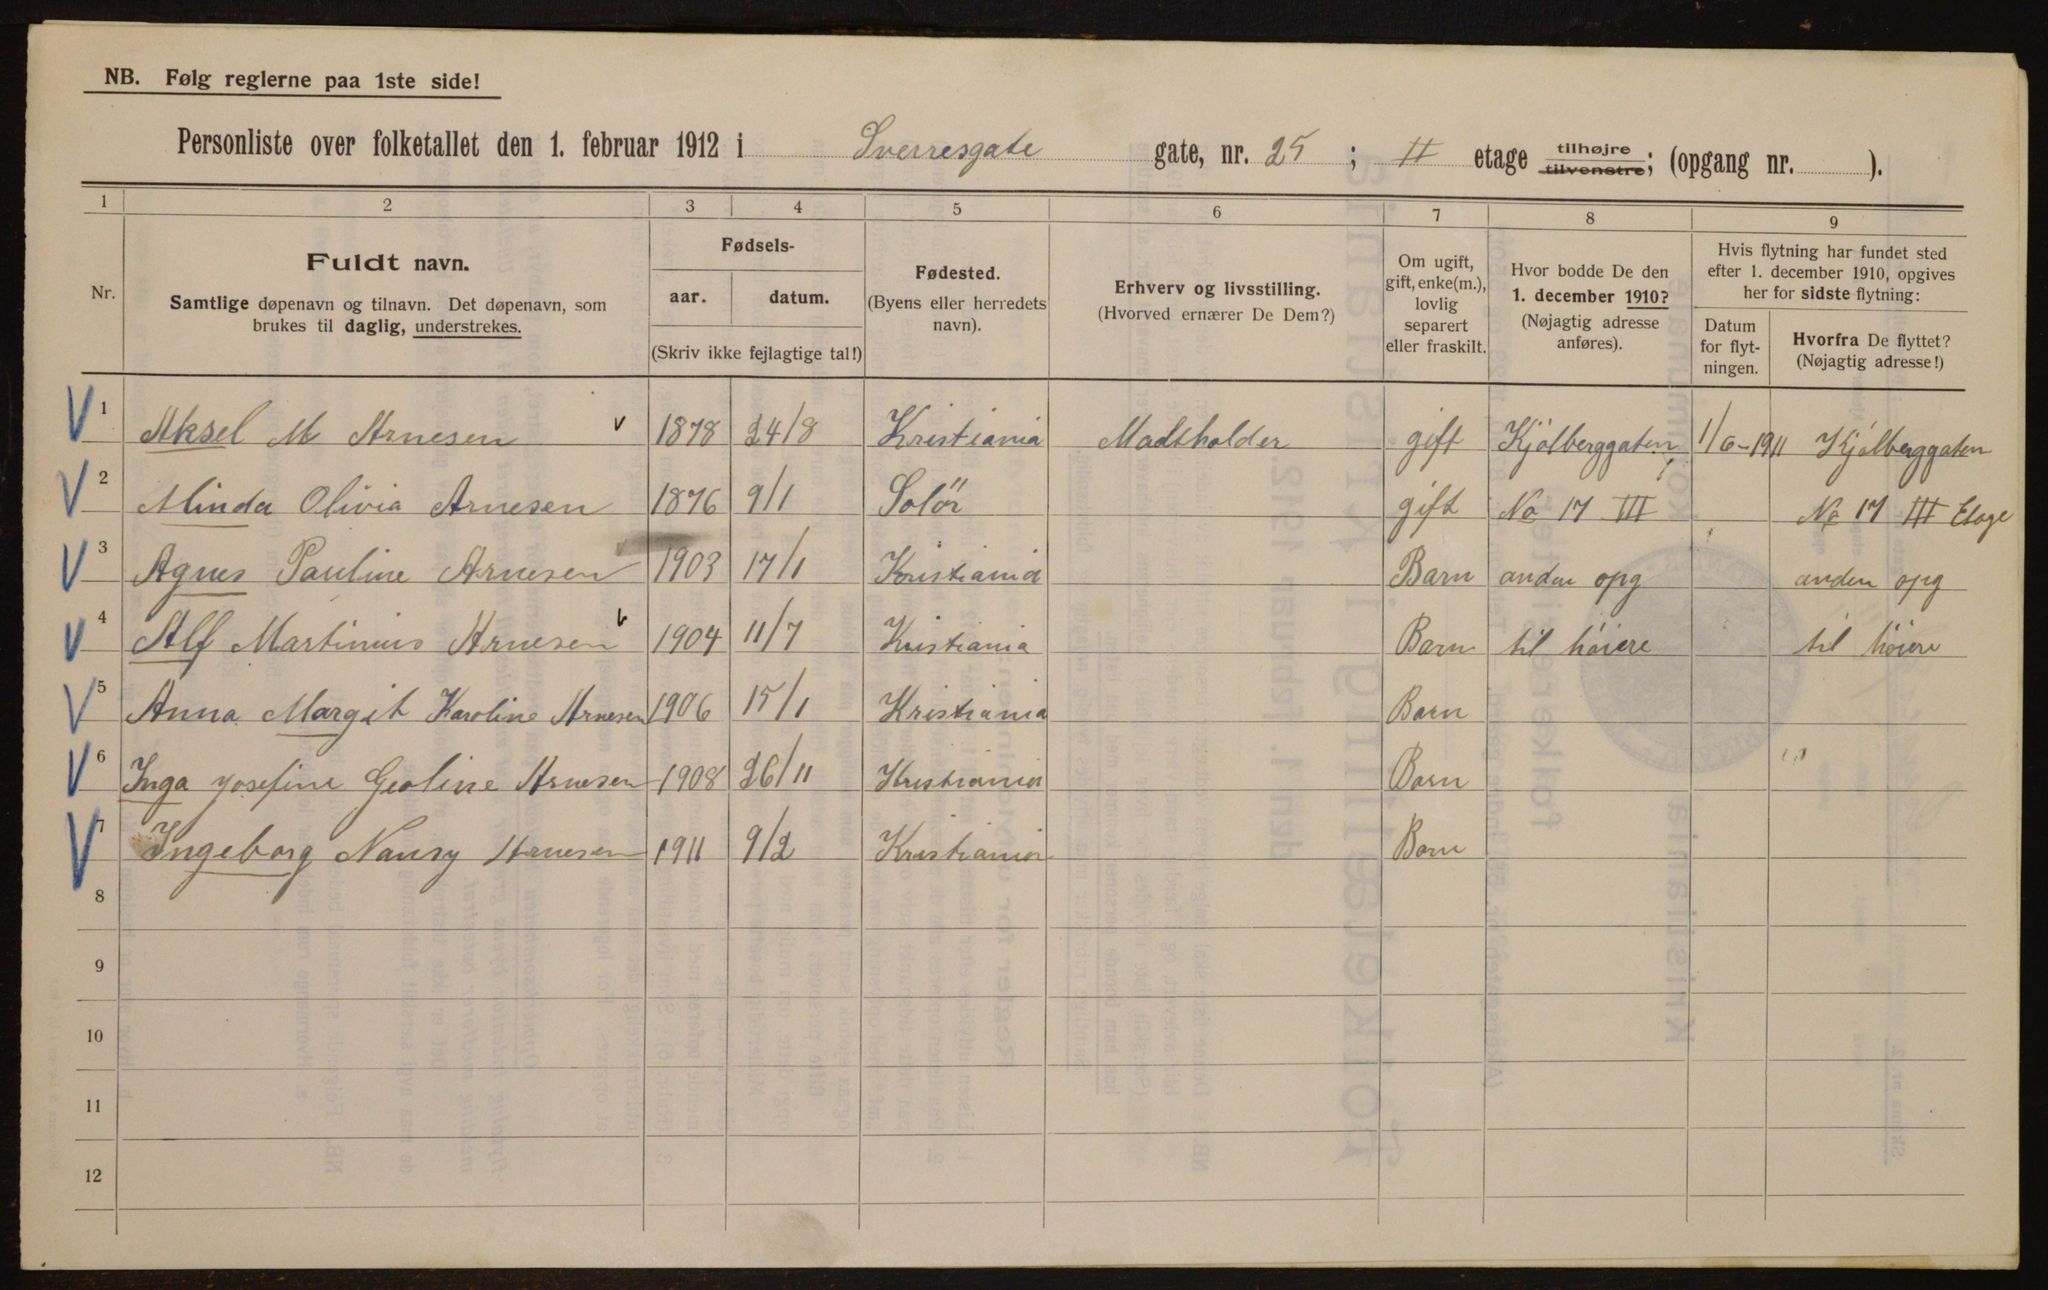 NB. Følg reglerne paa 1ste side!
Personliste over folketallet den 1. februar 1912 i Sverresgate gate, nr. 25; II etage tilhøjre tilvenstre; (opgang nr. ).
1 2 3 4 5 6 7 8 9
Nr.
Fuldt navn.
Samtlige døpenavn og tilnavn. Det døpenavn, som
brukes til daglig, understrekes.
Fødsels-
aar. datum.
(Skriv ikke fejlagtige tal!)
Fødested.
(Byens eller herredets
navn).
Erhverv og livsstilling.
(Hvorved ernærer De Dem?)
Om ugift,
gift, enke(m.),
lovlig
separert
eller fraskilt.
Hvor bodde De den
1. december 1910?
(Nøjagtig adresse
anføres).
Hvis flytning har fundet sted
efter 1. december 1910, opgives
her for sidste flytning:
Datum
for flyt-
ningen.
Hvorfra De flyttet?
(Nøjagtig adresse!)
V 1 Aksel M Arnesen v 1878 24/8 Kristiania gift Kjølberggaten 1/6-1911 Kjølberggaten
V 2 Minda Olivia Arnesen 1876 9/1 Solör gift No 17 III No 17 III Etage
V 3 Agnes Pauline Arnesen 1903 17/1 Kristiania Barn anden opg anden opg
V 4 Alf Martinius Arnesen v 1904 11/7 Kristiania Barn til höiere til höiere
V 5 Anna Margit Karoline Arnesen 1906 15/1 Kristiania Barn
V 6 Inga Josefine Geoline Arnesen 1908 26/11 Kristiania Barn
V 7 Ingeborg Nansy Arnesen 1911 9/2 Kristiania Barn
8
9
10
11
12